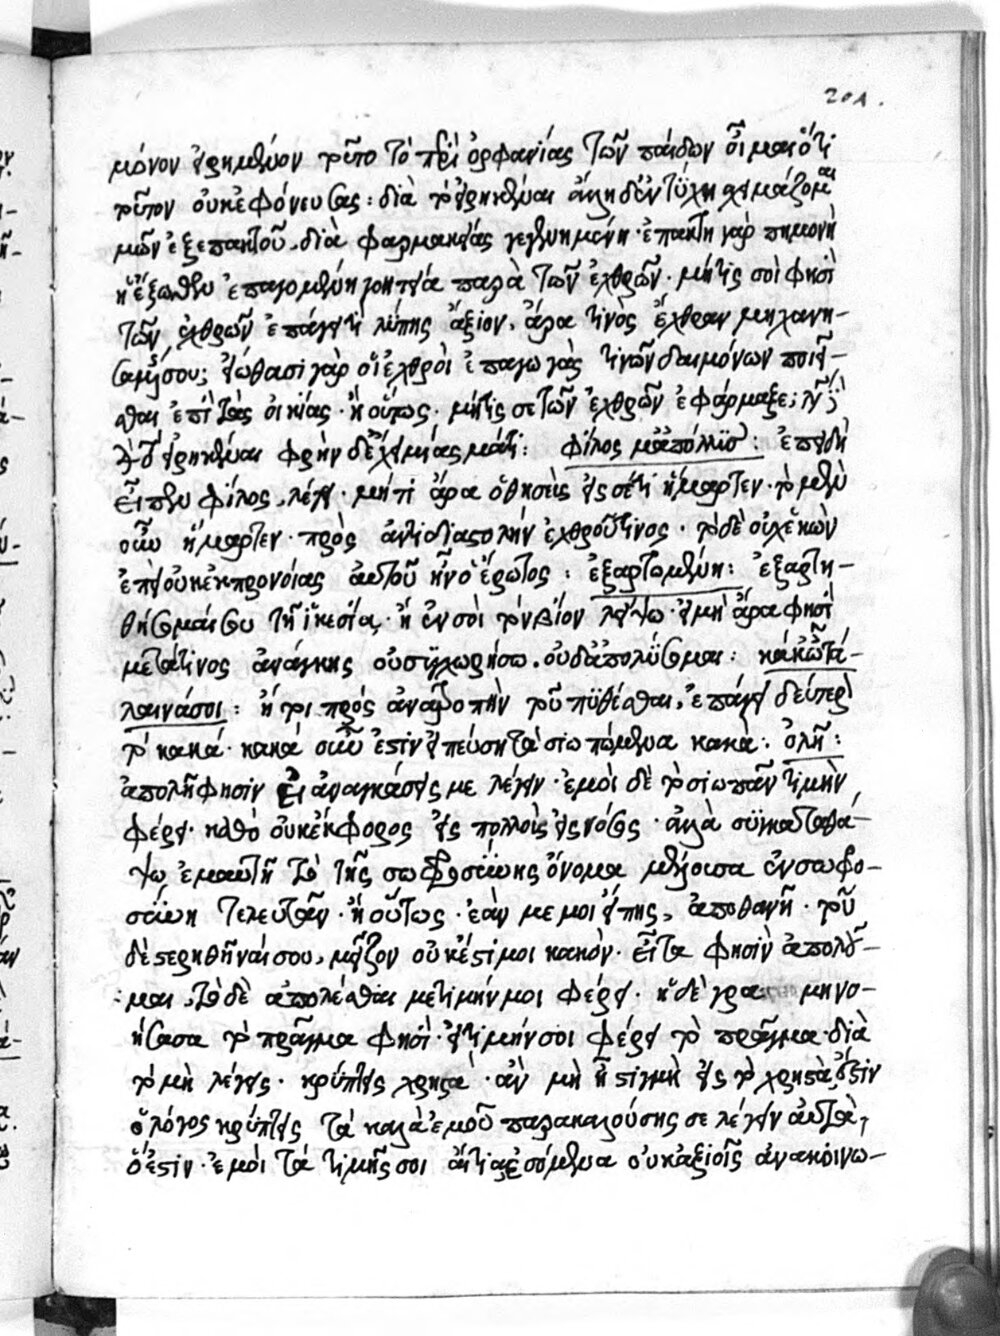 201.
μόνον εἰρημένον τοῦτο τὸ περὶ ὀρφανίας τῶν παίδων οἶμαι ὅτι
τοῦτον οὐκ ἐφόνευσας: διὰ τὸ εἰρηκέναι ἀλλ' ἠδὲν τύχη χειμάζομαι
μῶν ἐξ ἐπακτοῦ. διὰ φαρμακείας γεγενημένη. ἐπακτὴ γὰρ πημονὴ
ἡ ἔξωθεν ἐπαγομένη γοητεία παρὰ τῶν ἐχθρῶν. μήτις σοὶ φησὶ
τῶν ἐχθρῶν ἐπάγει τι λύπης ἄξιον. ἄρα τινὸς ἔχθραν μηχανη-
σαμένου; εἰώθασι γὰρ οἱ ἐχθροὶ ἐπαγωγὰς τινῶν δαιμόνων ποιεῖ-
σθαι ἐπὶ τὰς οἰκίας. ἢ οὕτως. μήτις σε τῶν ἐχθρῶν ἐφάρμαξε;
διὰ τὸ εἰρηκέναι φρὴν δ' ἔχει μίασμά τι: φίλος μ' ἀπόλλυσ': ἐπειδὴ
εἶπεν φίλος, λέγει. μή τι ἄρα ὁ θησεὺς εἰς σέ τι ἥμαρτεν. τὸ μὲν
οὖν ἥμαρτεν. πρὸς ἀντιδιαστολήν ἐχθροῦ τινος. τὸ δὲ οὐχ ἑκὼν
ἐπεὶ οὐκ ἐκ προνοίας αὐτοῦ ἦν ὁ ἔρωτος: ἐξαρτωμένη: ἐξαρτη-
θήσομαί σου τῇ ἱκεσίᾳ, ἢ ἐν σοὶ τὸν βίον λείψω. εἰ μὴ ἄρα φησὶ
μετά τινος ἀνάγκης οὐ συγχωρήσω. οὐδ' ἀπολύσομαι: κάκ' ὦ τά-
λαινά σοι: ἤτοι πρὸς ἀνατροπὴν τοῦ πυθέσθαι, ἐπάγει δεύτερον
τὸ κακά. κακὰ σοῦ ἐστὶν εἰ πεύσῃ τὰ σιωπώμενα κακά: ὀλῇ:
ἀπολῇ φησὶν εἰ ἀναγκάσεις με λέγειν. ἐμοὶ δὲ τὸ σιωπᾶν τιμὴν
φέρει. καθὸ οὐκ ἔκφορος εἰς πολλοὺς εἰς νόσος. ἀλλὰ συγκαταθά-
ψω ἐμαυτῇ τὸ τῆς σωφροσύνης ὄνομα μέλλουσα ἐν σωφρο-
σύνῃ τελευτᾶν. ἢ οὕτως. ἐάν με μοι εἴπης, ἀποθανῇ. τοῦ
δὲ στερηθῆναί σου, μεῖζον οὐκ ἔστι μοι κακὸν. εἶτα φησὶν ἀπολοῦ-
μαι. τὸ δὲ ἀπολέσθαι με τιμήν μοι φέρει. ἡ δὲ γρα μη νο-
ήσασα τὸ πρᾶγμα φησὶ. εἰ τιμήν σοι φέρει τὸ πρᾶγμα. διὰ
τὸ μὴ λέγεις. κρύπτεις χρηστά. ἀν μὴ ἦ στιγμὴ εἰς τὸ χρηστὰ, ἔστιν
ὁ λόγος κρύπτεις τὰ καλὰ ἐμοῦ παρακαλούσης σε λέγειν αὐτὰ,
ὅ ἐστιν. ἐμοὶ τὰ τιμῆς σοι αἴτια ἐσόμενα οὐκ ἀξιοῖς ἀνακοινω-